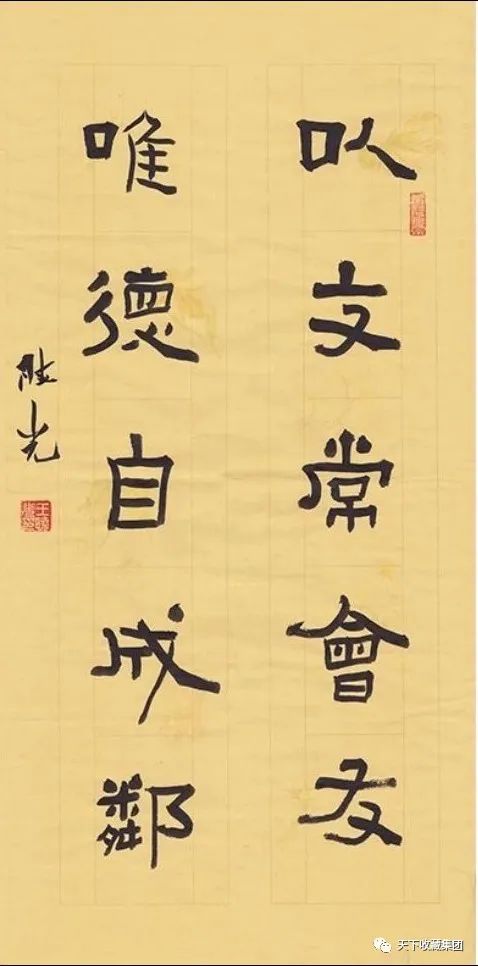 以文常會友
唯德自成鄰
胜光
天下收藏集团